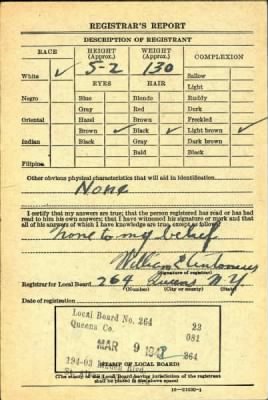 REGISTRAR'S REPORT
DESCRIPTION OF REGISTRANT
RACE HEIGHT (Approx.) WEIGHT (Approx.) COMPLEXION
5-2 130
White ✓ Sallow
EYES HAIR Light
Negro Blue Blonde Ruddy
Gray Red Dark
Oriental Hazel Brown Freckled
Brown ✓ Black ✓ Light brown ✓
Indian Black Gray Dark brown
Bald Black
Filipino
Other obvious physical characteristics that will aid in identification
None
I certify that my answers are true; that the person registered has read or has had
read to him his own answers; that I have witnessed his signature or mark and that
all of his answers of which I have knowledge are true, except as follows:
none to my belief
William
(Signature of registrar)
Registrar for Local Board 264 Queens N.Y.
(Number) (City or county) (State)
Date of registration
Local Board No. 264 23
Queens Co. 081
MAR 9 264
194-03
(STAMP OF LOCAL BOARD)
(The stamp of the Local Board having jurisdiction of the registrant
shall be placed in the above space)